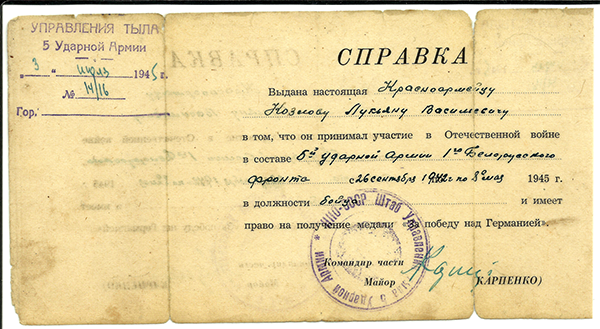 УПРАВЛЕНИЯ ТЫЛА
5 Ударной Армии
"3" июля 1945 г.
№ 14/16
Гор.
СПРАВКА
Выдана настоящая Красноармейцу
Козлову Лукьяну Василевичу
в том, что он принимал участие в Отечественной войне
в составе 5й ударной Армии 1го Белорусского
фронта с 26 сентября 1942 г по 8 мая 1945 г.
в должности бойца и имеет
право на получение медали победу над Германией».
Командир части
Майор КАРПЕНКО)
НКО-СССР Штаб Управления Тыла 5 Ударной Армии